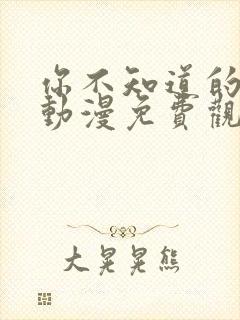 你不知道的
動漫免費觀
大晃晃熊